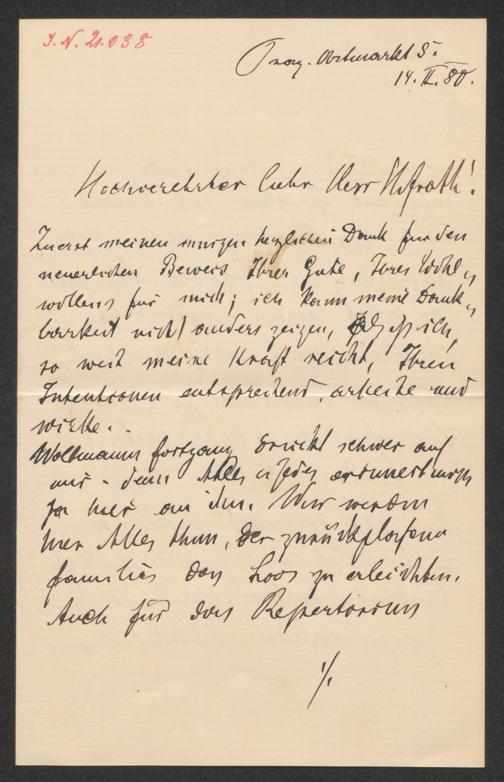 J.N. 21.038
Prag. Obstmarkt 5.
14. II. 80.
Hochverehrter lieber Herr Hofrath!
Zuerst meinen innigen herzlichen Dank für den
neuerlichen Beweis Ihrer Güte, Ihres Wohl„
wollens für mich; ich kann meine Dank„
barkeit nicht anders zeigen, als daß ich,
so weit meine Kraft reicht, Ihren
Intentionen entsprechend, arbeite und
wirke.
Woltmanns fortgang drückt schwer auf
mir - denn Alles u jedes erinnert mich
ja hier an ihn. Wir werden
hier Alles thun, der zurückgelassenen
familie das Loos zu erleichtern.
Auch für das Repertorium
./.